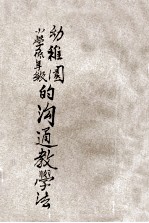 幼稚園
小學低年級
的沟通教學法